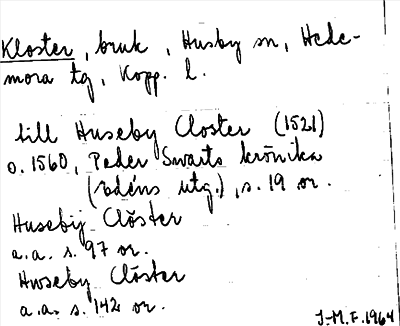 Kloster, bruk, Husby sn, Hede-
mora tg, Kopp. l.
till Huseby Closter (1521)
o. 1560, Peder Swarts krönika
(Edéns utg.), s. 19 or.
Husebÿ Clöster
a.a. s. 97 or.
Hwseby Clöster
a.a. s. 142 or.
J-M.F. 1964